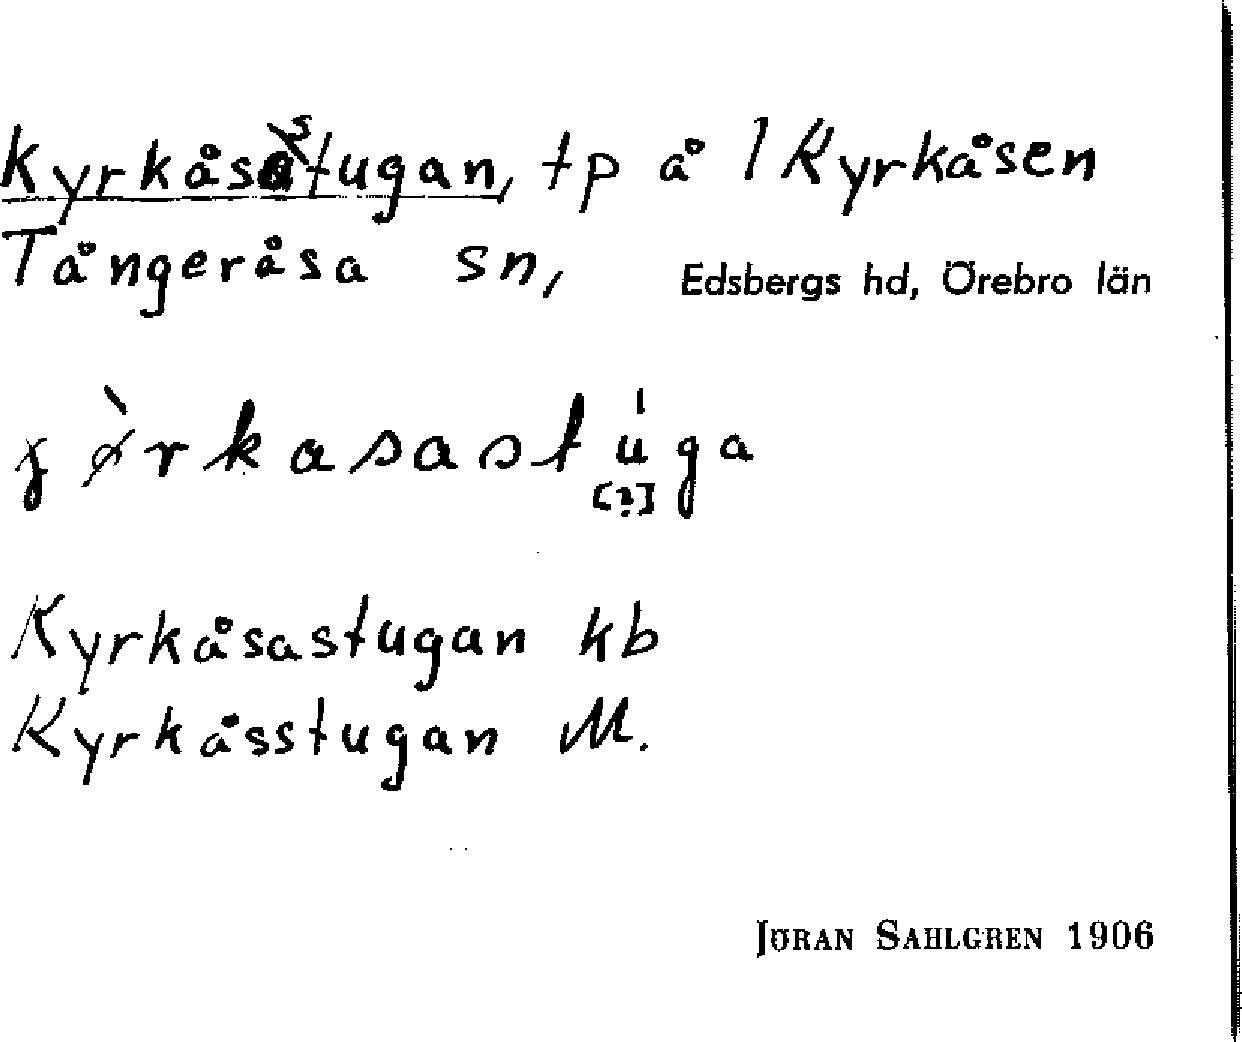 Kyrkåsstugan, tp å 1 Kyrkåsen
Tångeråsa sn, Edsbergs hd, Örebro län
ɟø̀rkasastu̍ga
[?]
Kyrkåsastugan kb
Kyrkåsstugan M.
JÖRAN SAHLGREN 1906